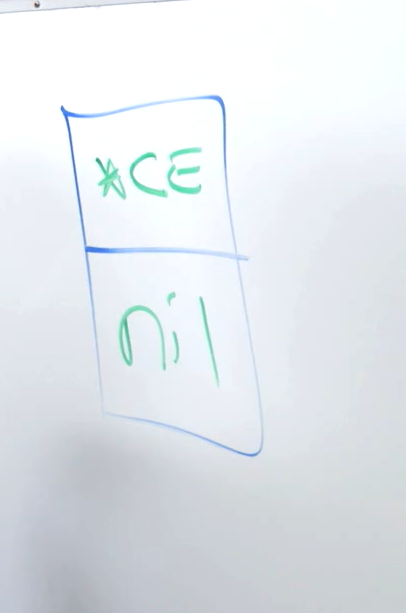 *CE
nil